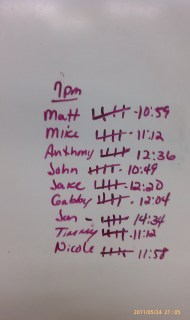 7pm
Matt 卌 - 10:59
Mike 卌 - 11:12
Anthony 卌 12:36
John 卌 - 10:49
Jake 卌 - 12:20
Gabby 卌 - 12:04
Jen - 卌 14:34
Timmy 卌 - 11:12
Nicole 卌 - 11:58
2011/05/24 21:05